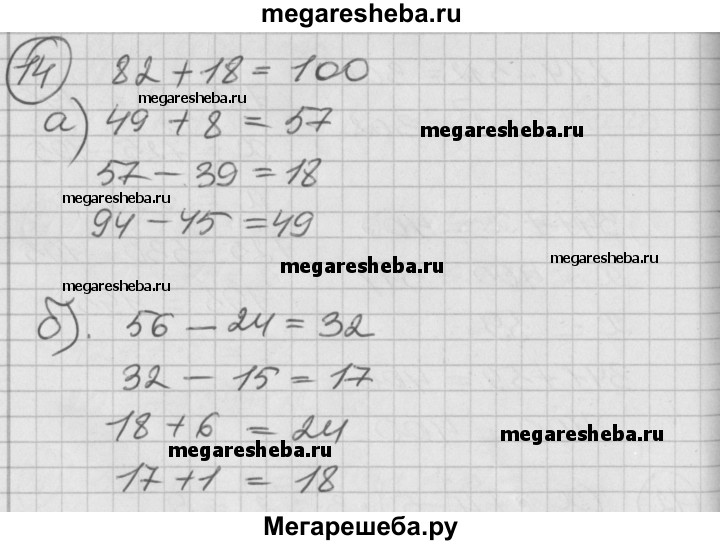 megaresheba.ru
14 82 + 18 = 100
megaresheba.ru
а) 49 + 8 = 57
megaresheba.ru
57 - 39 = 18
megaresheba.ru
94 - 45 = 49
megaresheba.ru
megaresheba.ru
megaresheba.ru
б). 56 - 24 = 32
32 - 15 = 17
18 + 6 = 24
megaresheba.ru
megaresheba.ru
17 + 1 = 18
Мегарешеба.ру